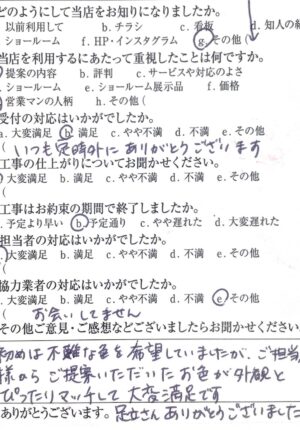 どのようにして当店をお知りになりましたか。
以前利用して b. チラシ c. 看板 d. 知人の紹
ショールーム f. HP・インスタグラム g. その他(
当店を利用するにあたって重視したことは何ですか。
提案の内容 b. 評判 c. サービスや対応のよさ
ショールーム e. ショールーム展示品 f. 価格
営業マンの人柄 h. その他(
受付の対応はいかがでしたか。
a. 大変満足 b. 満足 c. やや不満 d. 不満 e. その他
(いつも定時外にありがとうございます
工事の仕上がりについてお聞かせください。
大変満足 b. 満足 c. やや不満 d. 不満 e. その他
(
工事はお約束の期間で終了しましたか。
予定より早い b. 予定通り c. やや遅れた d. 大変遅れた
担当者の対応はいかがでしたか。
大変満足 b. 満足 c. やや不満 d. 不満 e. その他
(
協力業者の対応はいかがでしたか。
大変満足 b. 満足 c. やや不満 d. 不満 e. その他
( お会いしてません
その他ご意見・ご感想などございましたらお聞かせください。
初めは不難な色を希望していましたが、ご担当
様からご提案いただいたお色が外観と
ぴったりマッチして大変満足です
ありがとうございます。足立さんありがとうございました